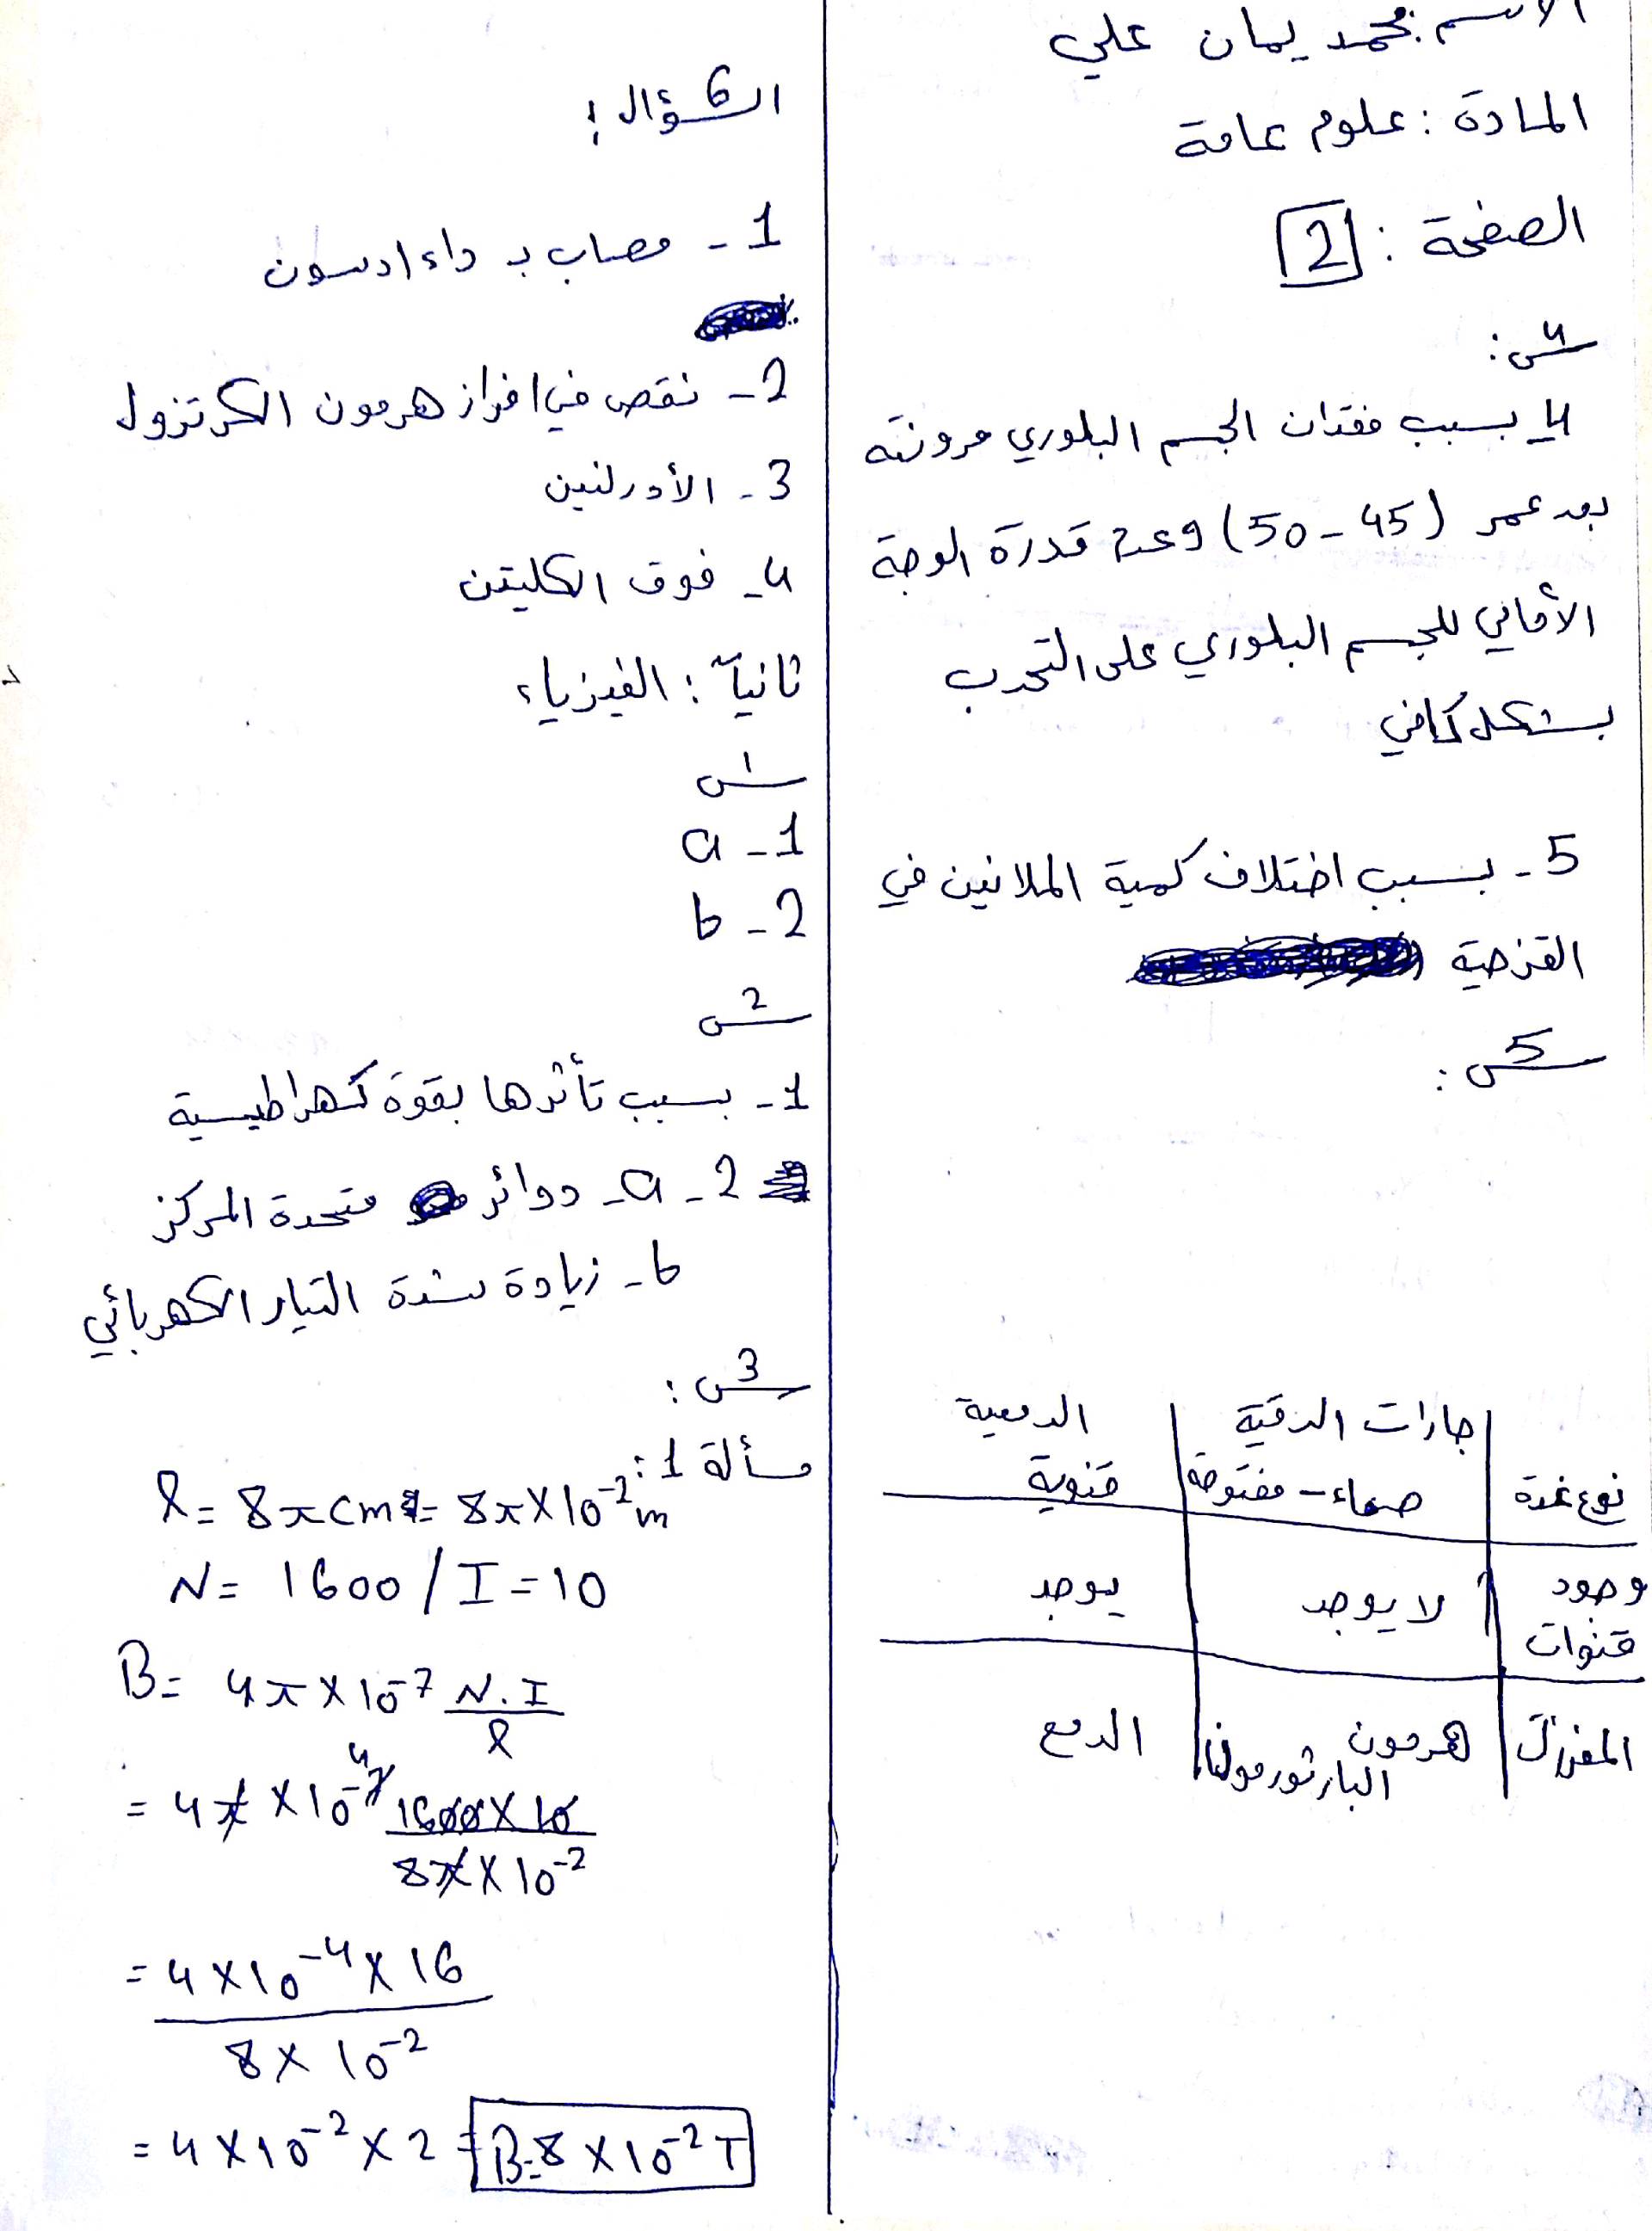 الاسم: محمد يمان علي
المادة: علوم عامة
الصفحة: 2
س4:
4- بسبب فقدان الجسم البلوري مرونته
بعد عمر (45 - 50) وعدم قدرة الوجه
الأمامي للجسم البلوري على التحدب
بشكل كافي
5- بسبب اختلاف كمية الملانين في
القزحية
س5:
جارات الدرقية | الدمعية
نوع غدة | صماء - مفتوحة | قنوية
وجود قنوات | لا يوجد | يوجد
المفرزات | هرمون البارثورمون | الدمع
السؤال 6:
1- مصاب بـ داء ادسون
2- نقص في افراز هرمون الكرتزول
3- الأدرلنين
4- فوق الكليتن
ثانياً: الفيزياء
س1
1- a
2- b
س2
1- بسبب تأثرها بقوة كهراطيسية
2- a- دوائر متحدة المركز
b- زيادة شدة التيار الكهربائي
س3:
مسألة 1:
l = 8π cm = 8π × 10⁻² m
N = 1600 / I = 10
B = 4π × 10⁻⁷ N.I / l
= 4π × 10⁻⁷ 1600 × 10 / 8π × 10⁻²
= 4 × 10⁻⁴ × 16 / 8 × 10⁻²
= 4 × 10⁻² × 2 = B = 8 × 10⁻² T